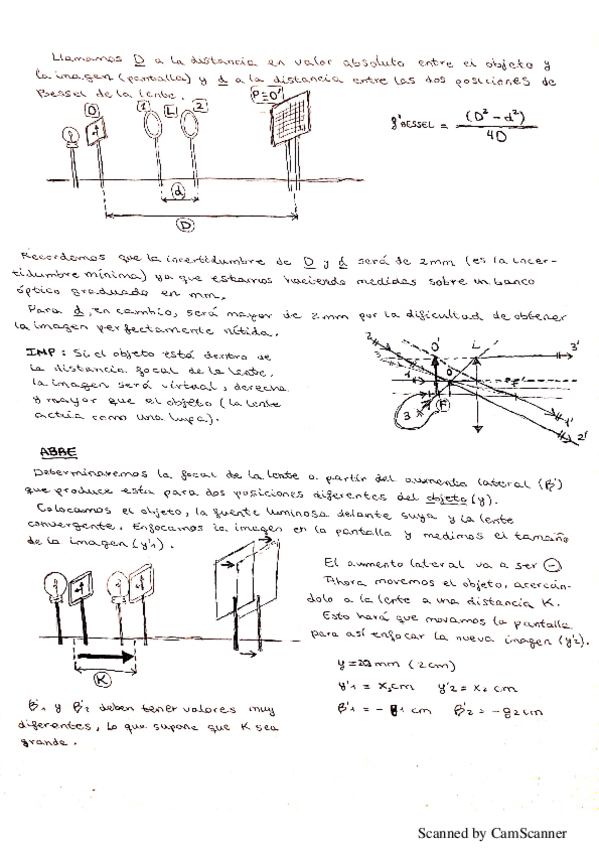 Llamamos D a la distancia en valor absoluto entre el objeto y
la imagen (pantalla) y d a la distancia entre las dos posiciones de
Bessel de la lente.
P=O'
O 1 L 2
d
D
f'BESSEL = (D² - d²) / 4D
Recordemos que la incertidumbre de D y d será de 2mm (es la incer-
tidumbre mínima) ya que estamos haciendo medidas sobre un banco
óptico graduado en mm.
Para d, en cambio, será mayor de 2mm por la dificultad de obtener
la imagen perfectamente nítida.
IMP: Si el objeto está dentro de
la distancia focal de la lente,
la imagen será virtual, derecha
y mayor que el objeto (la lente
actúa como una lupa).
2 O' L 3'
1 O F'
3 F 1'
2'
ABBE
Determinaremos la focal de la lente a partir del aumento lateral (β')
que produce esta para dos posiciones diferentes del objeto (y).
Colocamos el objeto, la fuente luminosa delante suya y la lente
convergente. Enfocamos la imagen en la pantalla y medimos el tamaño
de la imagen (y'1).
El aumento lateral va a ser -
Ahora movemos el objeto, acercán-
dolo a la lente a una distancia K.
Esto hará que movamos la pantalla
para así enfocar la nueva imagen (y'2).
K
y=20mm (2cm)
y'1 = x,cm y'2= x2 cm
β'1 = - 81 cm β'2 = -82cm
β'1 y β'2 deben tener valores muy
diferentes, lo que supone que K sea
grande.
Scanned by CamScanner